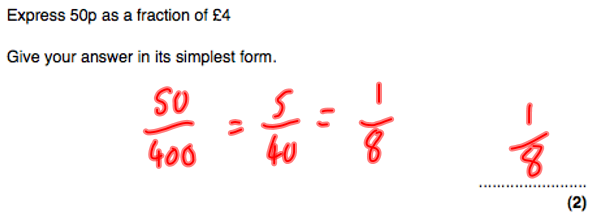 Express 50p as a fraction of £4
Give your answer in its simplest form.
50/400 = 5/40 = 1/8
1/8
........................
(2)